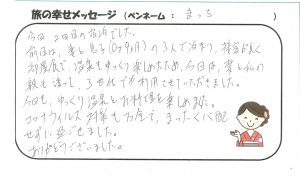 旅の幸せメッセージ（ペンネーム：まっち）
今日2回目の宿泊でした。
前回は、妻と息子（0才9ヵ月）の3人で泊まり、接客が良く
部屋食で、温泉もゆっくり楽しめたため、今回は、妻と私の
親を誘って、3世代で利用させていただきました。
今回も、ゆっくり温泉とお料理を楽しめました。
コロナウイルス対策も万全で、まったく心配
せずに過ごせました。
ありがとうございました。